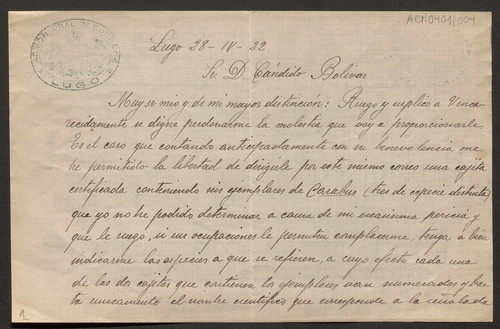 ACN0401/004
LUGO
Lugo 28-IV-22
Sr. D. Cándido Bolívar
Muy sr mio y de mi mayor distinción: Ruego y suplico a V enca
recidamente se digne perdonarme la molestia que voy a proporcionarle.
Es el caso que contando anticipadamente con su benevolencia me
he permitido la libertad de dirigirle por este mismo correo una cajita
certificada conteniendo seis ejemplares de Carabus (tres de especie distinta)
que yo no he podido determinar a causa de mi escasisima pericia y
que le ruego, si sus ocupaciones le permiten complacerme, tenga a bien
indicarme las especies a que se refieren, a cuyo efecto cada uno
de las dos cajitas que contienen los ejemplares van numerados y bas
ta unicamente el nombre científico que corresponde a la señalada
1